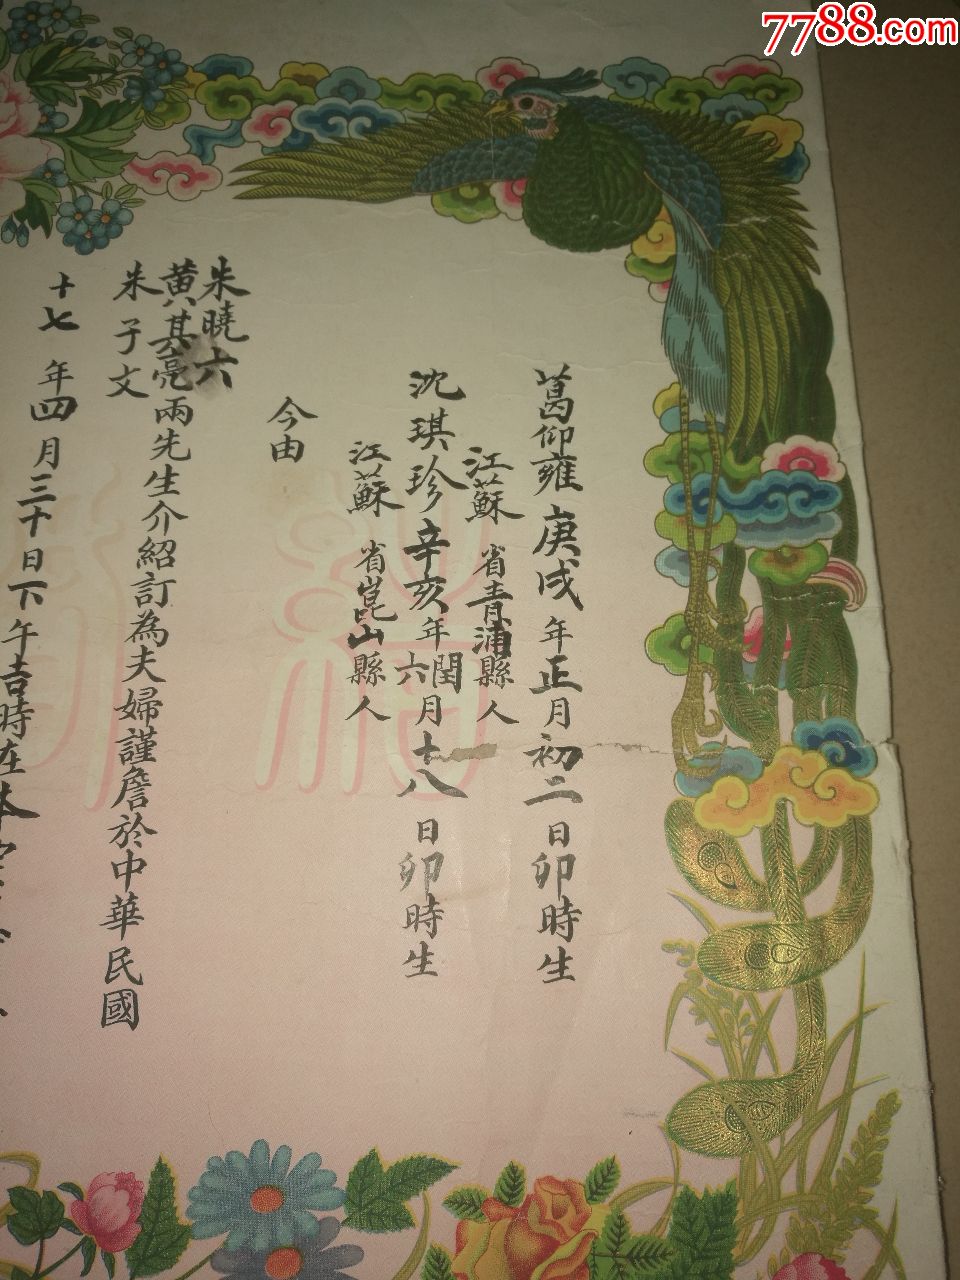 7788.com
葛仰雍庚戌年正月初二日卯時生
江蘇省青浦縣人
沈琪珍辛亥年閏六月十八日卯時生
江蘇省崑山縣人
今由
朱曉六
黄其亮兩先生介紹訂為夫婦謹詹於中華民國
朱子文
十七年四月三十日下午吉時在本